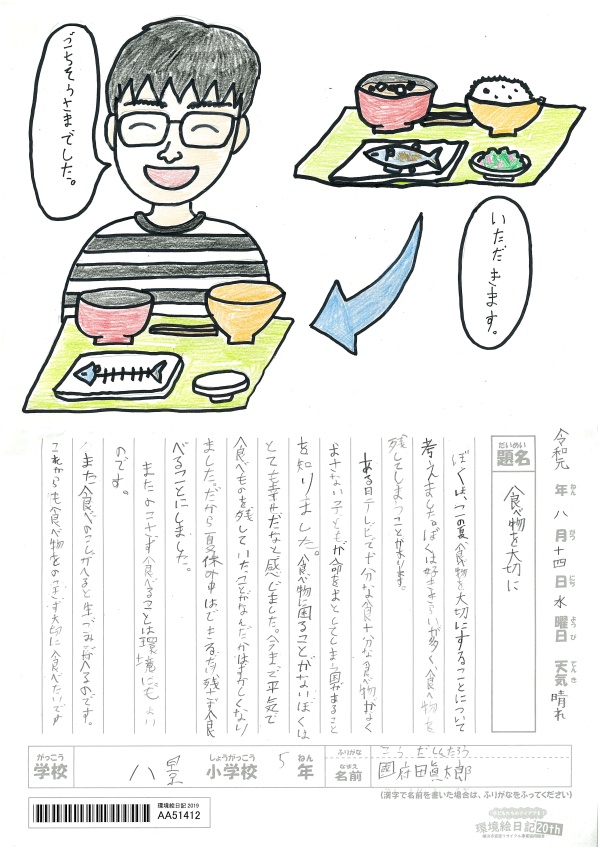 ごちそうさまでした。
いただきます。
令和元年八月十四日水曜日 天気晴れ
ねん がつ にち ようび てんき
だいめい
題名
食べ物を大切に
ぼくは、この夏食べ物を大切にすることについて
考えました。ぼくは好ききらいが多く、食べ物を
残してしまうことがあります。
ある日テレビで十分な食十分な食べ物がなく
まさない子どもが命をおとしてしまう国があること
を知りました。食べ物に困ることがないぼくは
とても幸せだなと感じました。今まで平気で
食べものを残していたことがなんだかはずかしくなり
ました。だから夏休み中はできるだけ残さず食
べることにしました。
またのこさず食べることは環境にもよい
のです。
また食べのこしがへると生ゴミがへるのです。
これからも食べ物をのこさず大切に食べたいです
がっこう
学校
八景
しょうがっこう
小学校
5
ねん
年
ふりがな
こうだしんたろう
なまえ
名前
國府田眞太郎
(漢字で名前を書いた場合は、ふりがなをふってください)
環境絵日記 2019
AA51412
環境絵日記 20th